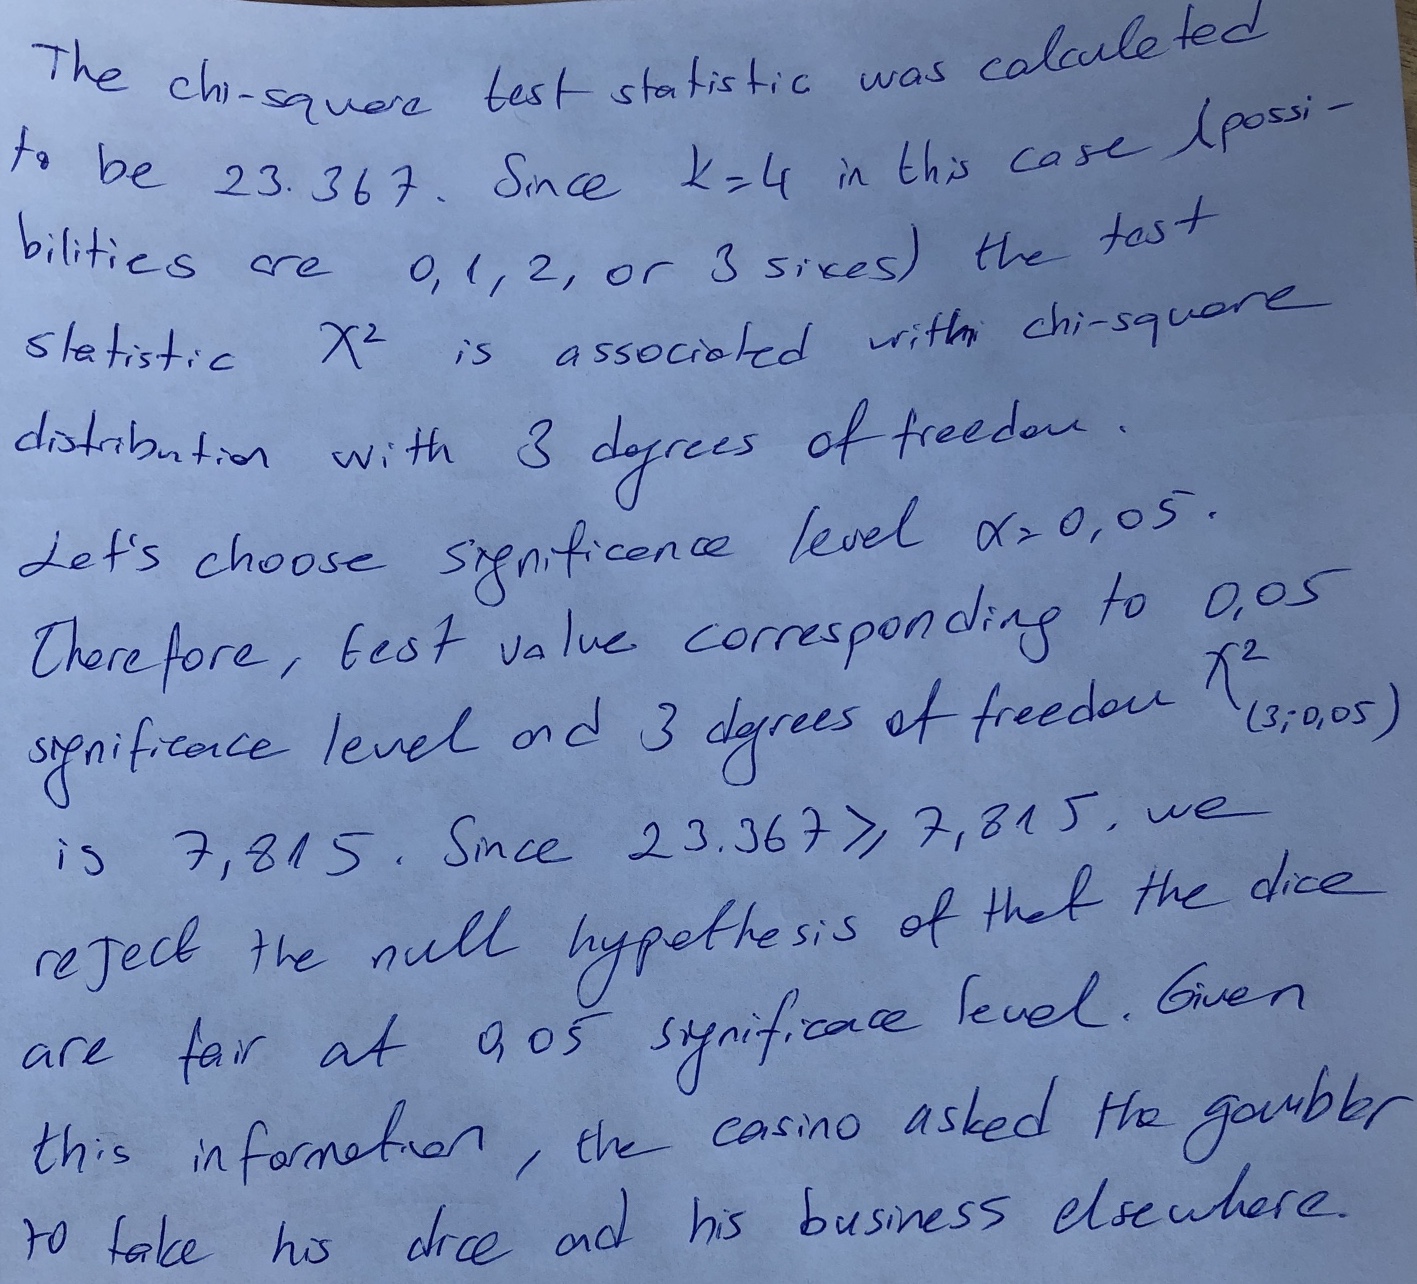 The chi-square test statistic was calculated
to be 23.367. Since k=4 in this case (possi-
bilities are 0,1,2, or 3 sixes) the test
statistic X² is associated with chi-square
distribution with 3 degrees of freedom.
Let's choose significance level α=0,05.
Therefore, test value corresponding to 0,05
significace level and 3 degrees of freedom X²(3;0,05)
is 7,815. Since 23.367 ≥ 7,815, we
reject the null hypothesis of that the dice
are fair at 0,05 significace level. Given
this information, the casino asked the gambler
to take his dice and his business elsewhere.